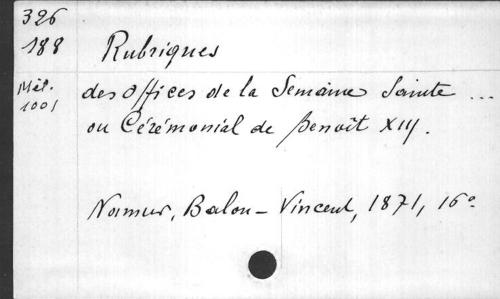 326
188 Rubriques
Mél. 1001
des offices de la Semaine Sainte ...
ou Cérémonial de Benoît XIII.
Namur, Balon-Vincent, 1871, 16°